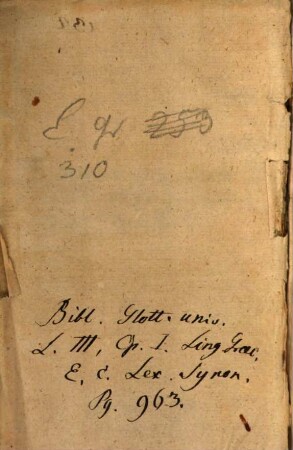 E gr 253
310
Bibl. Glott. univ.
L. III, Cp. I. Ling Graec,
E, c. Lex. Synon.
Pg. 963.